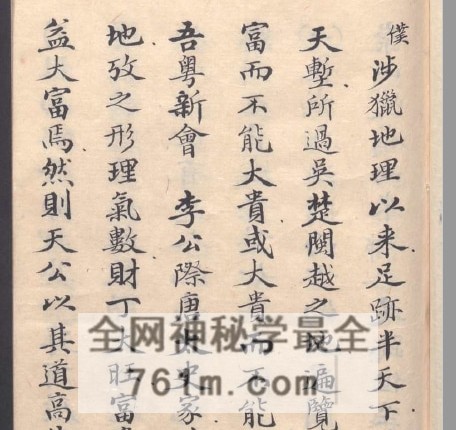 僕涉獵地理以来足跡半天下
天塹所過吳楚閩越之地遍覽
富而不能大貴或大貴而不能
吾粵新會 李公際唐太史家
地攷之形理氣數財丁大旺富
益大富焉然則天公以其道高
全网神秘学最全
761m.com